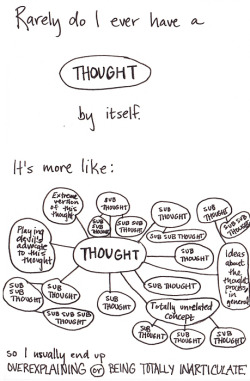 Rarely do I ever have a
THOUGHT
by itself.
It's more like:
Extreme
version
of this
thought
SUB
THOUGHT
SUB
SUB
THOUGHT
SUB
THOUGHT
SUB SUB THOUGHT
SUB
THOUGHT
SUB
SUB
THOUGHT
SUB
SUB
THOUGHT
Playing
devil's
advocate
to this
thought
THOUGHT
SUB
THOUGHT
Ideas
about
the
thought
process
in
general
SUB
SUB
THOUGHT
SUB
THOUGHT
SUB SUB SUB
THOUGHT
SUB
THOUGHT
SUB THOUGHT
Totally unrelated
concept
SUB
THOUGHT
SUB
THOUGHT
SUB
THOUGHT
so I usually end up
OVEREXPLAINING or BEING TOTALLY INARTICULATE.